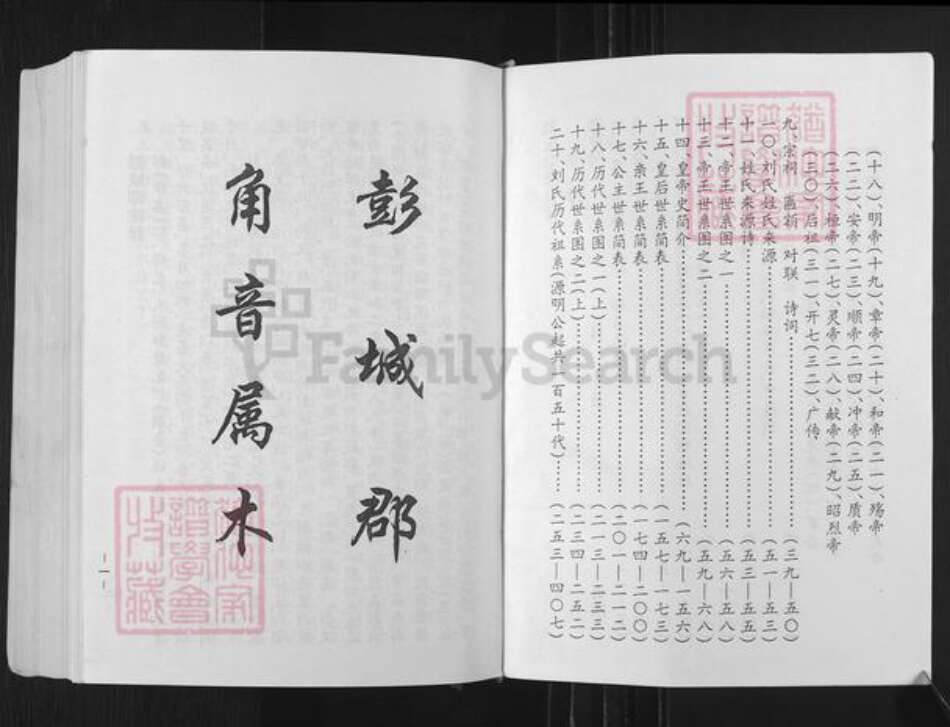 (十八)、明帝(十九)、章帝(二十)、和帝(二一)、殇帝
(二二)、安帝(二三)、顺帝(二四)、冲帝(二五)、质帝
(二六)、桓帝(二七)、灵帝(二八)、献帝(二九)、昭烈帝
(三〇)、后祖(三一)、开七(三二)、广传
九、宗祠 匾额 对联 诗词……(三九—五〇)
一〇、刘氏姓氏来源……(五一—五三)
十一、姓氏来源诗……(五三—五五)
十二、帝王世系图之一……(五六—五八)
十三、帝王世系图之二……(五九—六八)
十四、皇帝史简介……(六九—一五六)
十五、皇后世系简表……(一五七—一七三)
十六、亲王世系简表……(一七四—二〇〇)
十七、公主世系简表……(二〇一—二一二)
十八、历代世系图之一(上)……(二一三—二三三)
十九、历代世系图之二(上)……(二三四—二五二)
二十、刘氏历代祖系(源明公起共一百五十代)……(二五三—四〇七)
彭城郡
角音属木
—一—
FamilySearch